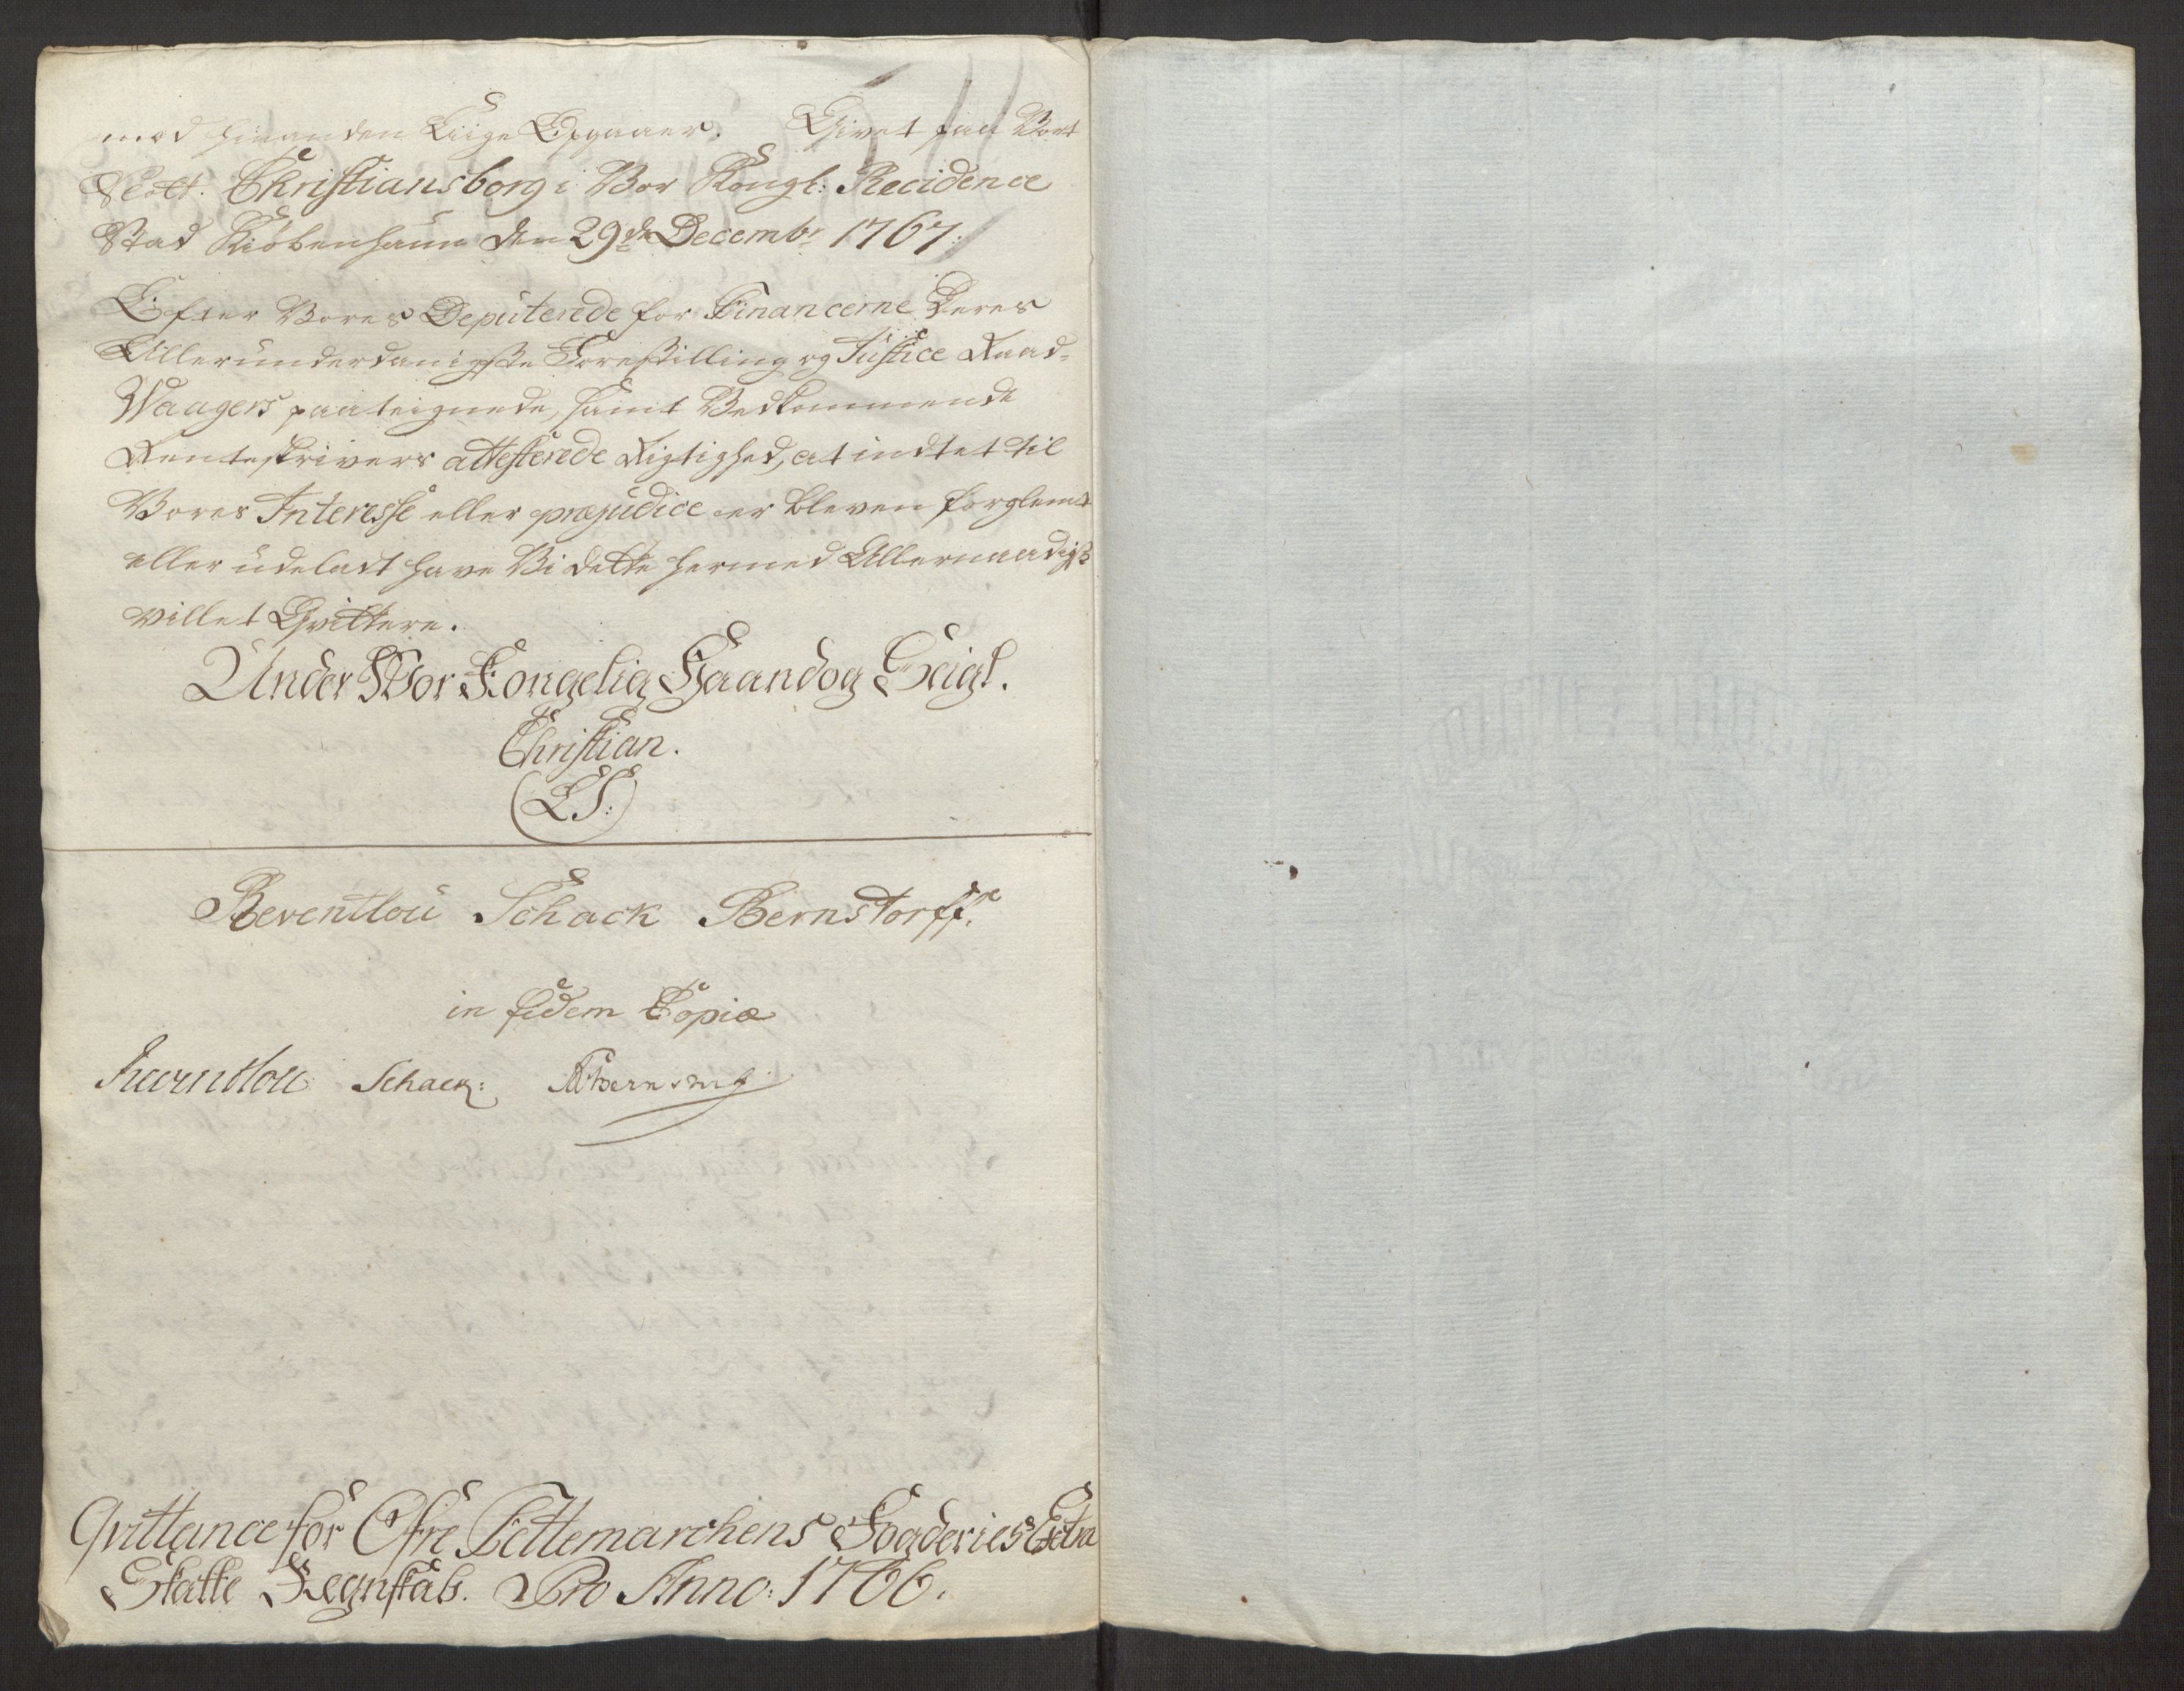 med hinanden Liige Opgaaer. Givet paa Vort
Slott Christiansborg i Vor Kongl: Recidence
Stad Kiöbenhaun den 29de Decembr 1767.
Efter Vores Deputerede for Financerne Deres
Allerunderdanigste Forestilling og Justice Raad-
Waagers paateignede, samt Vedkommende
Renteskrivers attesterede Rigtighed, at indtet til
Vores Interesse eller præjudice er bleven forglemt
eller udeladt have Vi dette hermed Allernaadigst
villet Qvittere.
Under Vor Kongelig Haand og Seigl.
Christian.
(LS:)
Reventlou Schack Bernstorff.
in fidem Copiæ
Reventlou Schack:
Qvittance for Öfre Tellemarchens Fogderies Extra
Skatte Regnskab. Pro Anno: 1766.